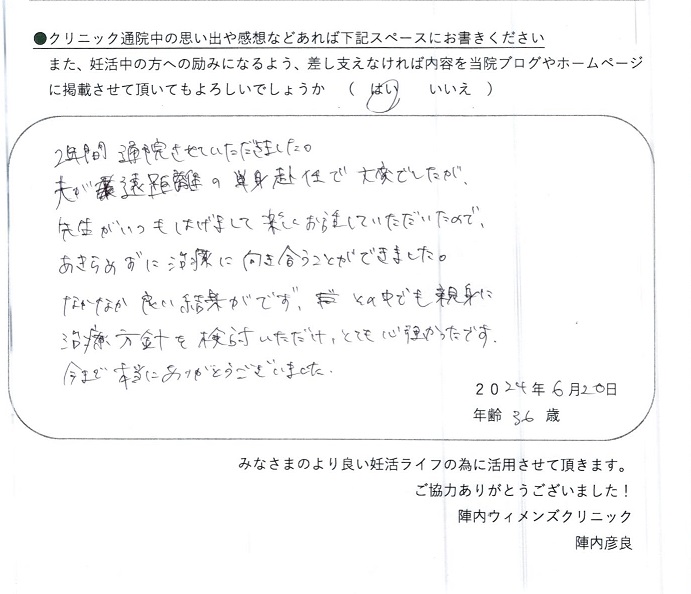 ●クリニック通院中の思い出や感想などあれば下記スペースにお書きください
また、妊活中の方への励みになるよう、差し支えなければ内容を当院ブログやホームページ
に掲載させて頂いてもよろしいでしょうか （ はい いいえ ）
2年間通院させていただきました。
夫が遠距離の単身赴任で大変でしたが、
先生がいつもはげまして楽しくお話していただいたので、
あきらめずに治療に向き合うことができました。
なかなか良い結果がでず、その中でも親身に
治療方針を検討いただけ、とても心強かったです。
今まで本当にありがとうございました。
2024年6月20日
年齢 36 歳
みなさまのより良い妊活ライフの為に活用させて頂きます。
ご協力ありがとうございました！
陣内ウィメンズクリニック
陣内彦良